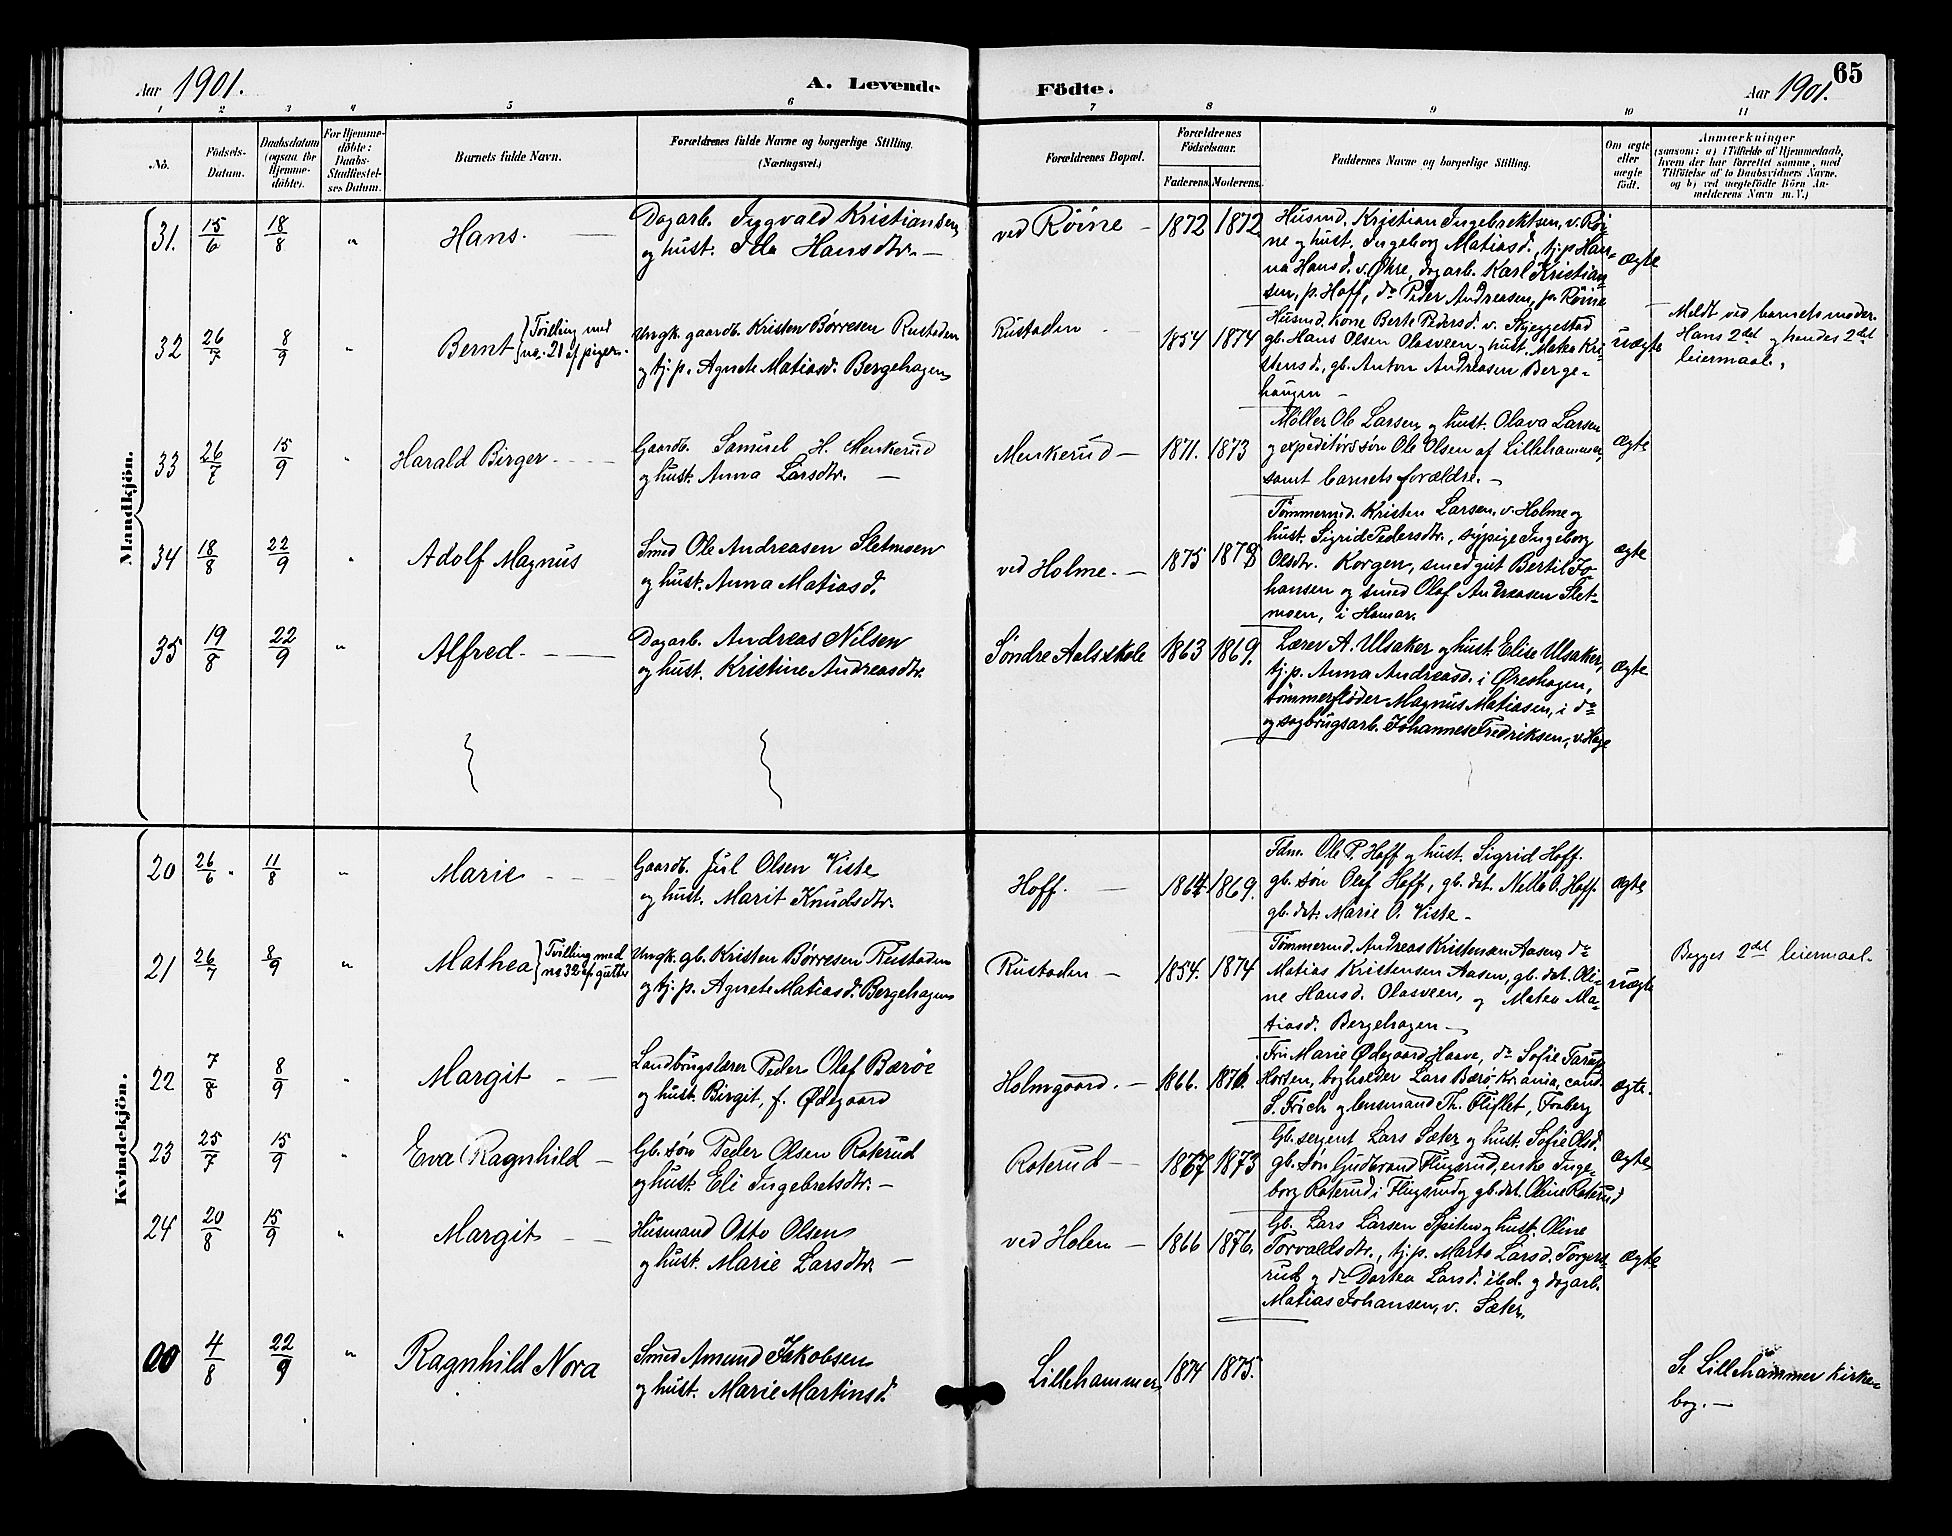 Aar 1901. A. Levende Födte. Aar 1901. 65
1 2 3 4 5 6 7 8 9 10 11
No. Födsels-Datum. Daabsdatum (ogsaa for Hjemme-döbte). For Hjemme-döbte: Daabs-Stadfæstel-ses Datum. Barnets fulde Navn. Forældrenes fulde Navne og borgerlige Stilling. (Næringsvei.) Forældrenes Bopæl. Forældrenes Födselsaar. Faderens. Moderens. Faddernes Navne og borgerlige Stilling. Om ægte eller uægte födt. Anmærkninger
(saasom: a) i Tilfælde af Hjemmedaab,
hvem der har forrettet samme, med
Tilföielse af to Daabsvidners Navne.
og b) ved uægtefödte Börn An-
melderens Navn m. V.)
Mandkjön.
31. 15/6 18/8 " Hans.
Dagarb. Inggvald Kristiansen,
og hust. Hansdtr.
ved Röine 1872 1872
Husmd. Kristian Ingebrektsen, v. Röi-
ne og hust. Ingeborg Matiasd., tj.p. Han-
na Hansd. v. Øhre, dagarb. Karl Kristian-
sen, p. Hoff, do Peder Andreasen, p. Röine
ægte
32 26/7 8/9 " Bernt {Tvilling med
no. 21 af piger.
Ungk. gaardb. Kristen Børresen Rustaden
og tj.p. Agnete Matiasd. Bergehagen
Rustaden 1854 1874
Husmd. kone Berte Pedersd. v. Skjeggestad
gb. Hans Olsen Olasveen og hust. Matea Kri-
stensd., gb. Anton Andreasen Berge-
haugen
uægte
Meldt ved barnets moder.
Hans 2det og hendes 2det
leiermaal.
33 26/7 15/9 " Harald Birger.
Gaardb. Samuel H. Menkerud
og hust. Anna Larsdtr.
Menkerud 1871. 1873
Møller Ole Larsen og hust. Olava Larsen
og expeditørssøn Ole Olsen af Lillehammer,
samt barnets forældre.
ægte
34 18/8 22/9 " Adolf Magnus
Smed Ole Andreasen Sletmoen
og hust. Anna Matiasd.
ved Holme. 1875 1878
Tømmermd. Kristen Larsen, v. Holme og
hust. Sigrid Pedersdtr., sypige Ingeborg
Olsdtr. Korgen, smedgut Bertil Jo-
hansen og smed Olaf Andreasen Slet-
moen, i Hamar.
ægte
35 19/8 22/9 " Alfred.
Dagarb. Andreas Nilsen
og hust. Kristine Andreasdtr.
Søndre Aals skole 1863 1869.
Lærer A. Ulsaker og hust. Elise Ulsaker,
tj.p. Anna Andreasd. i Øreshagen,
tømmerfløder Magnus Matiasen, i do
og sagbrugsarb. Johannes Fredriksen, v. Hage
ægte
Kvindekjön.
20 26/6. 11/8 " Marie
Gaardb. Jul Olsen Viste
og hust. Marit Knudsdtr.
Hoff. 1864 1869.
Fdm. Ole P. Hoff og hust. Sigrid Hoff.
gb. søn Olaf Hoff, gb. dat. Nelle O. Hoff.
gb. dat. Marie O. Viste
ægte
21 26/7 8/9 " Mathea {Tvilling med
no 32 af gutter
Ungk. gb. Kristen Børresen Rustaden
og tj.p. Agnete Matiasd. Bergehagen
Rustaden 1854. 1874
Tømmermd. Andreas Kristensen Aasen, do
Matias Kristensen Aasen, gb. dat. Oli-
ne Hansd. Olasveen, og Matea Ma-
tiasd. Bergehagen
uægte
Begges 2det leiermaal.
22 7/8 8/9 " Margit
Landbrugslærer Peder Olaf Bærøe
og hust. Birgit, f. Ødegaard
Holmgaard. 1866. 1876.
Fru Marie Ødegaard Haave, do Sofie
Horten, bogholder Lars Bærö Krania, cand.
S. Frich og lensmand Th. Fliflet, Faaberg
ægte.
23 25/7 15/9 " Eva Ragnhild
Gb. søn Peder Olsen Roterud
og hust. Eli Ingebretsdtr.
Roterud 1867 1873
Gb. sergent Lars Sæter og hust. Sofie Olsd.
gb. søn Gudbrand Flugsrud, enke Inge-
borg Roterud i Flugsrud og gb. dat. Oline Roterud
ægte
24 20/8 15/9 " Margit
Husmand Otto Olsen
og hust. Marie Larsdtr.
ved Holen 1866 1876.
Gb. Lars Larsen Spiten og hust. Oline
Torvaldsdtr., tj.p. Marte Larsd. Torgers-
rud og do Dortea Larsd. ibd. og dagarb.
Matias Johansen, v. Sæter.
ægte
00 4/8 22/9 " Ragnhild Nora
Smed Amund Jakobsen
og hust. Marie Martinsd.
Lillehammer 1874 1875.
Se Lillehammer kirke-
bog.